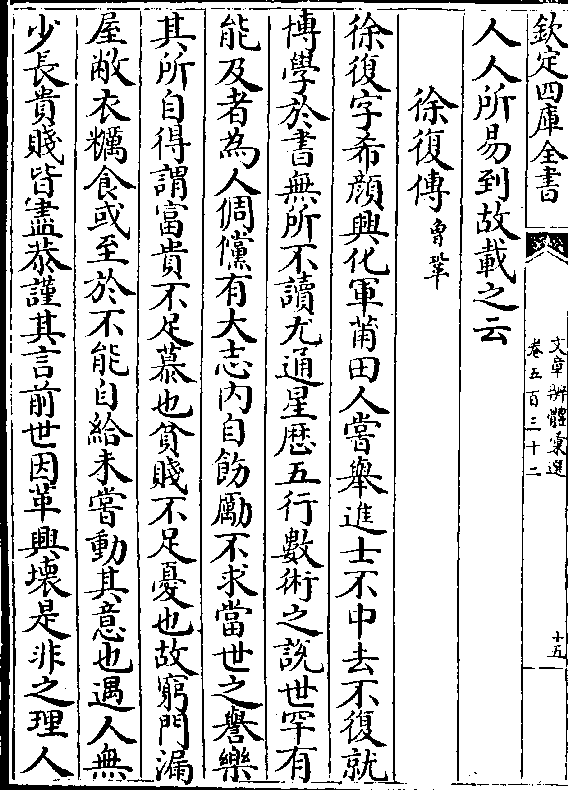 欽定四庫全書
文章辨體彙選
卷五百三十二
十五
人人所易到故載之云
徐復傳曾鞏
徐復字希顔興化軍莆田人嘗舉進士不中去不復就
博學於書無所不讀尤通星厯五行數術之說世罕有
能及者為人倜儻有大志内自飭勵不求當世之譽樂
其所自得謂富貴不足慕也貧賤不足憂也故窮門漏
屋敝衣糲食或至於不能自給未嘗動其意也遇人無
少長貴賤皆盡恭謹其言前世因革興壊是非之理人